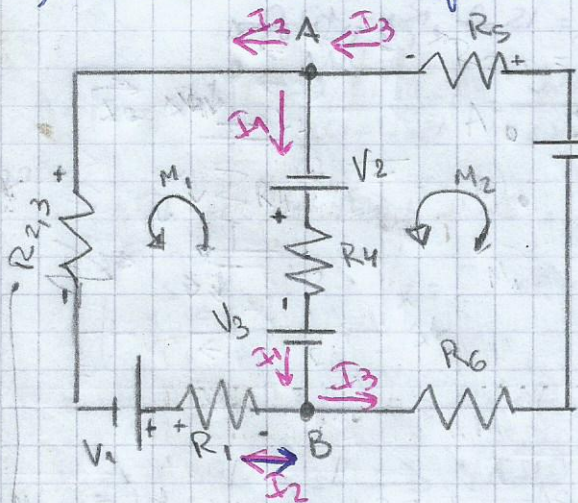 I2 A I3
R5
- +
I1
V2
+ M1 M2
+
R2,3 R4
-
- V3
I1 I3 R6
+ + -
V1 R1 B
I2